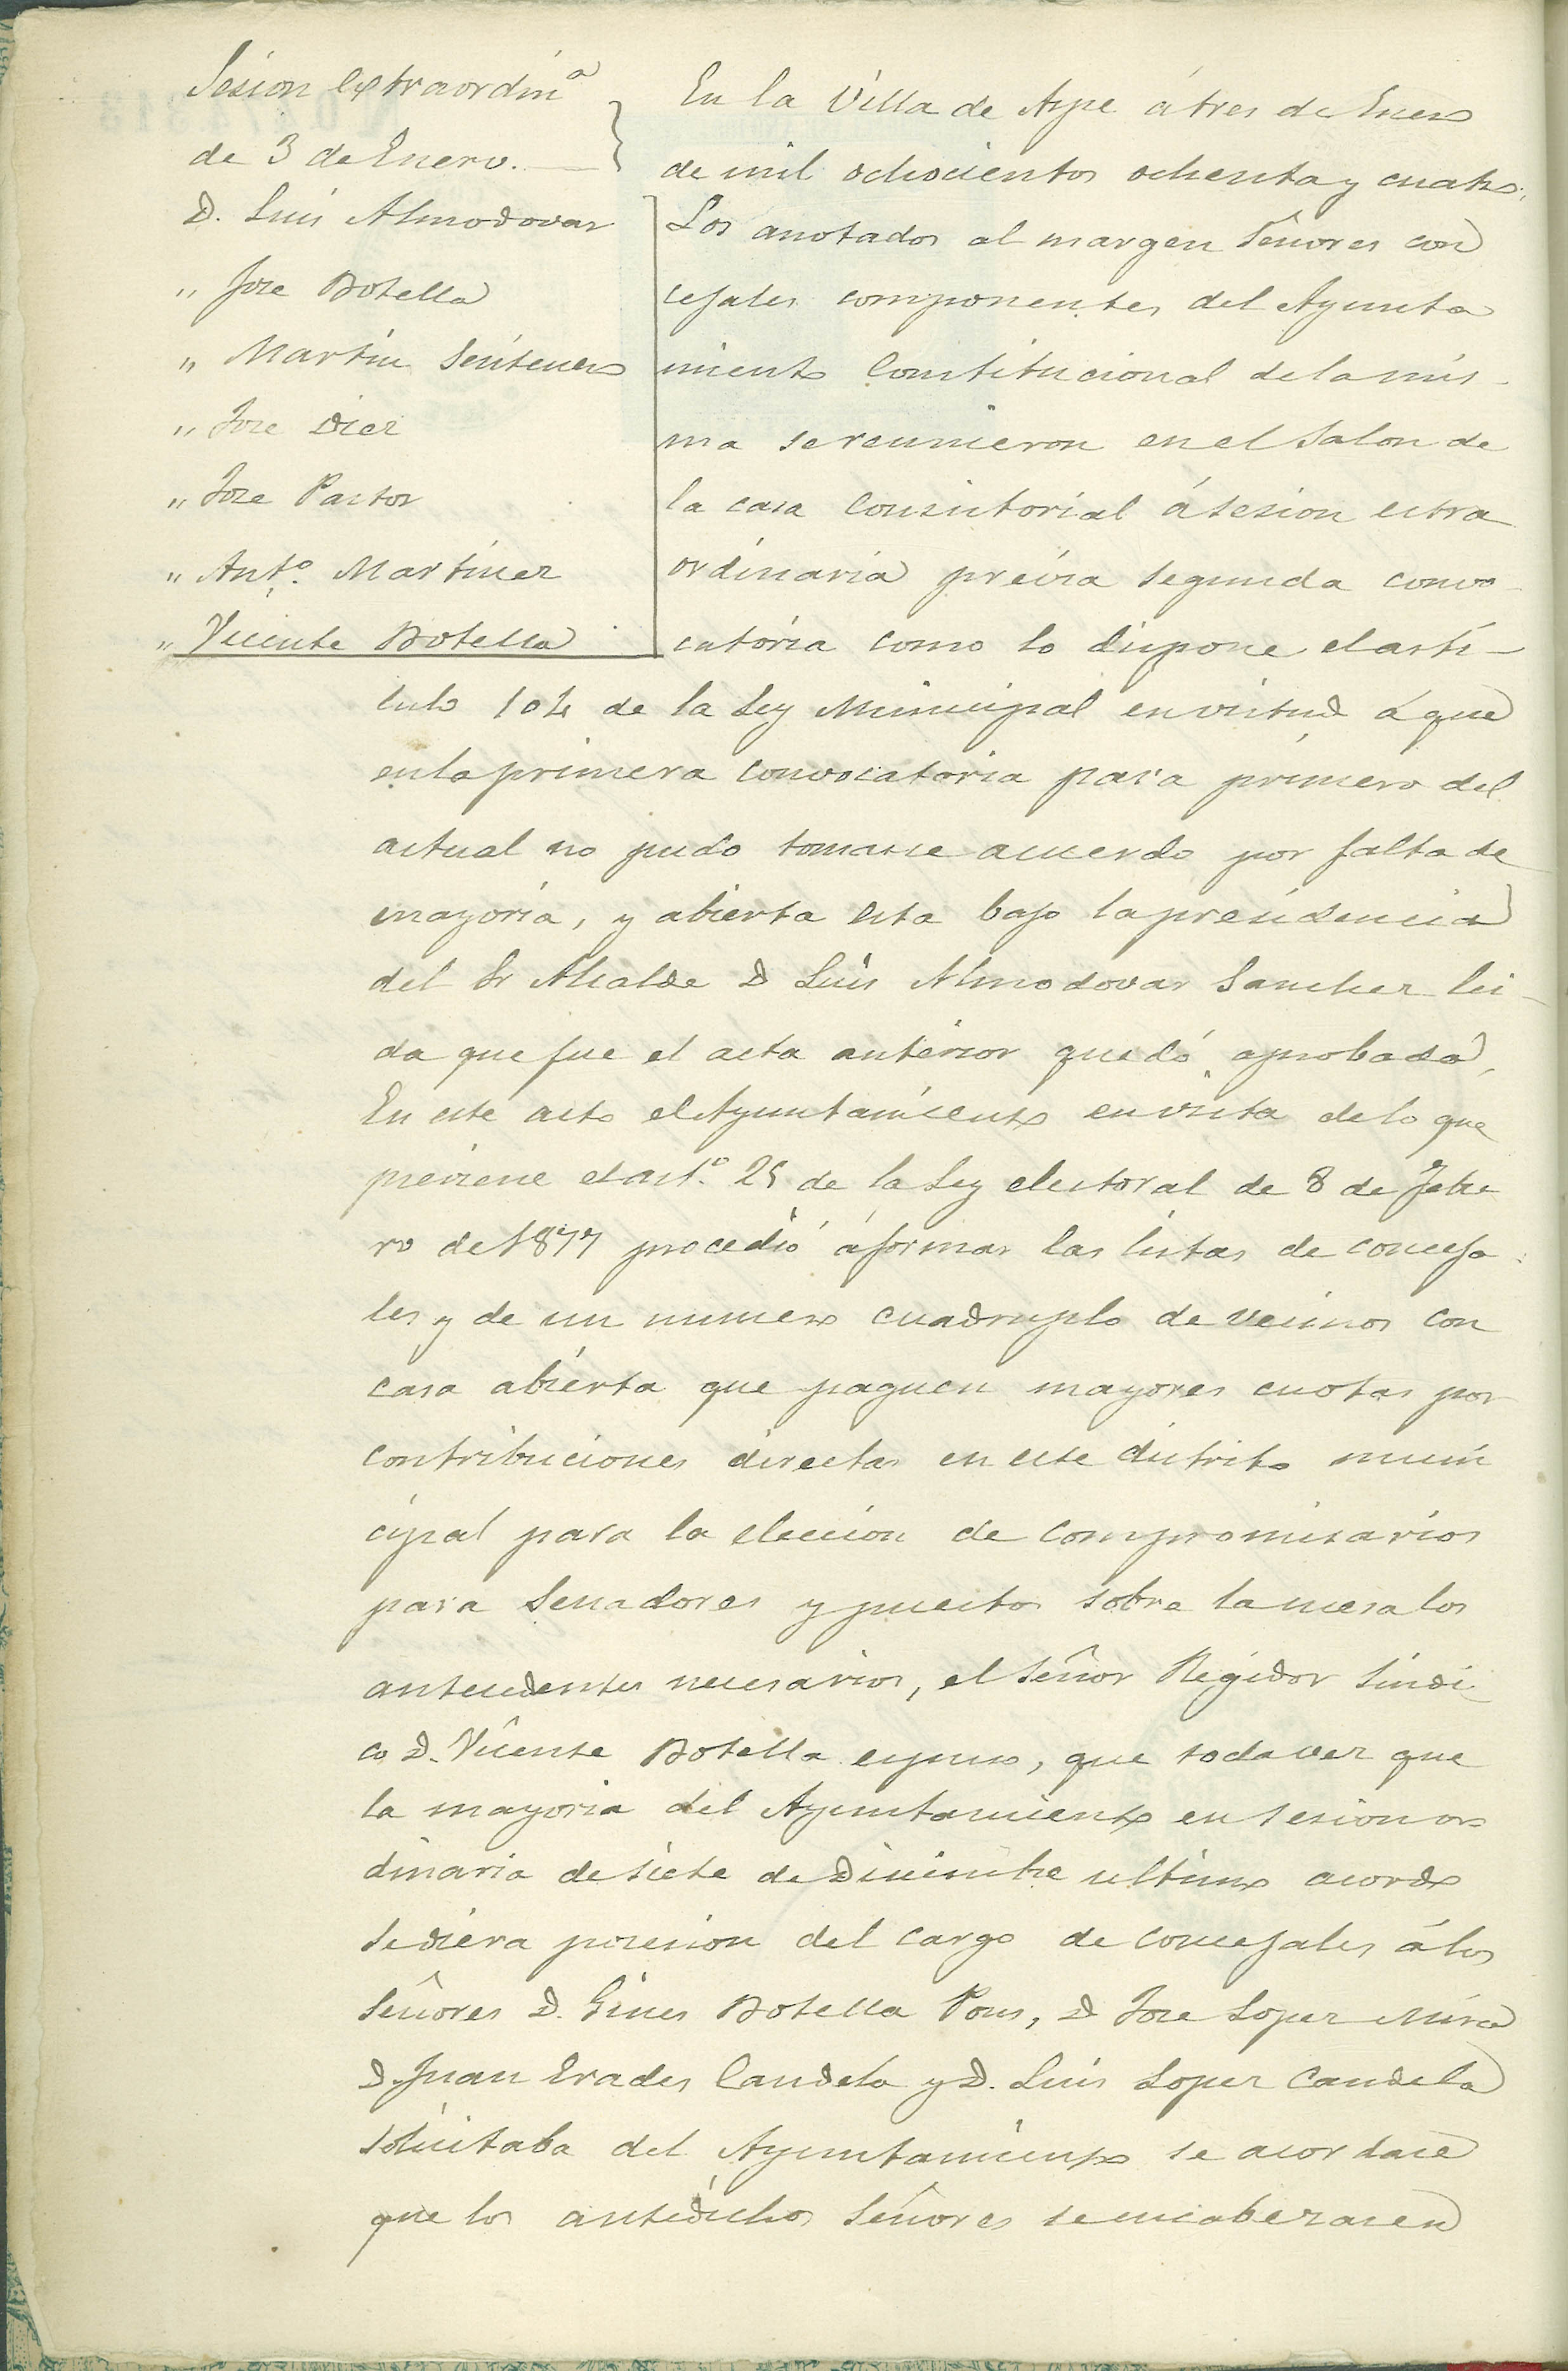 Sesion extraordinª
de 3 de Enero.
D. Luis Almodovar
" Jose Botella
" Martin Sentenero
" Jose Diez
" Jose Pastor
" Antº. Martinez
" Vicente Botella
En la Villa de Aspe á tres de Enero
de mil ochocientos ochenta y cuatro;
Los anotados al margen Señores con
cejales componentes del Ayunta
miento Constitucional de la mis-
ma se reunieron en el Salon de
la casa Consistorial á sesion estra
ordinaria previa segunda convo-
catoria como lo dispone el artí-
culo 104 de la Ley Municipal en virtud á que
en la primera convocatoria para primero del
actual no pudo tomarse acuerdo por falta de
mayoria, y abierta esta bajo la presidencia
del Sr Alcalde D Luis Almodovar Sanchez lei-
da que fue el acta anterior quedó aprobada,
En este acto el Ayuntamiento en vista de lo que
previene el artº. 25 de la Ley electoral de 8 de Febre
ro de 1877 procedió á formar las listas de conceja
les y de un numero cuadruplo de vecinos con
casa abierta que paguen mayores cuotas por
contribuciones directas en este distrito muni
cipal para la eleccion de compromisarios
para Senadores y puestos sobre la mesa los
antecedentes necesarios, el Señor Regidor Sindi-
co D. Vicente Botella espuso, que toda vez que
la mayoria del Ayuntamiento en sesion or
dinaria de siete de Diciembre ultimo acordo
se diera posesion del cargo de concejales á los
Señores D. Gines Botella Pons, D Jose Lopez Mira
D. Juan Erades Candela y D. Luis Lopez Candela
solicitaba del Ayuntamiento se acordase
que los antedichos Señores se encabezasen